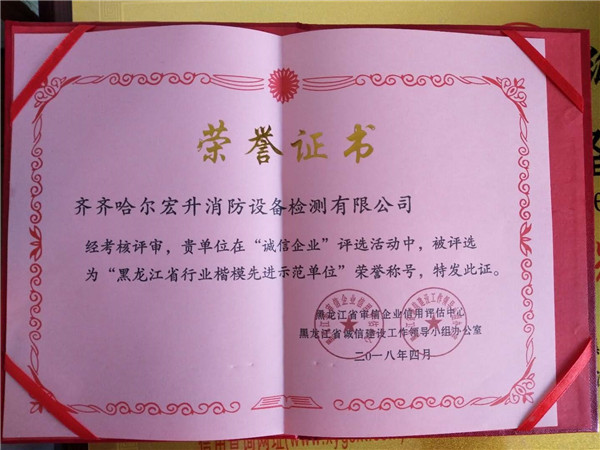 荣誉证书
齐齐哈尔宏升消防设备检测有限公司
经考核评审，贵单位在“诚信企业”评选活动中，被评选
为“黑龙江省行业楷模先进示范单位”荣誉称号，特发此证。
黑龙江省审信企业信用评估中心
黑龙江省诚信建设工作领导小组办公室
二〇一八年四月